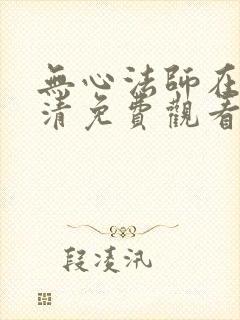 無心法師在
清免費觀看
段凌汛